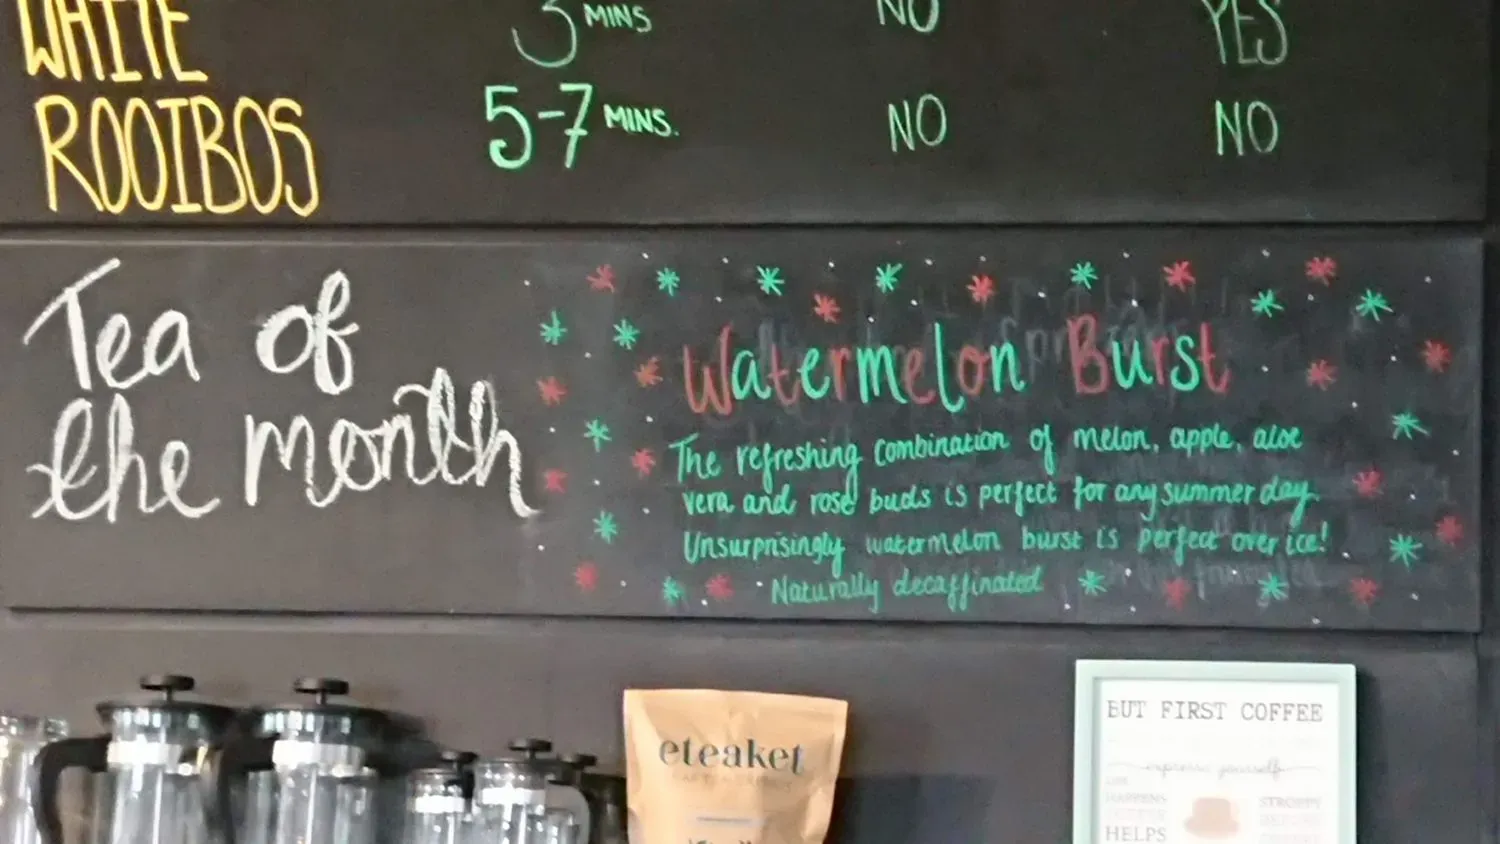 WHITE 3 MINS NO YES
ROOIBOS 5-7 MINS. NO NO
Tea of
the month
Watermelon Burst
The refreshing combination of melon, apple, aloe
vera and rose buds is perfect for any summer day.
Unsurprisingly watermelon burst is perfect over ice!
Naturally decaffinated
eteaket
BUT FIRST COFFEE
espresso yourself
HAPPENS
HELPS
STROPPY
BEFORE